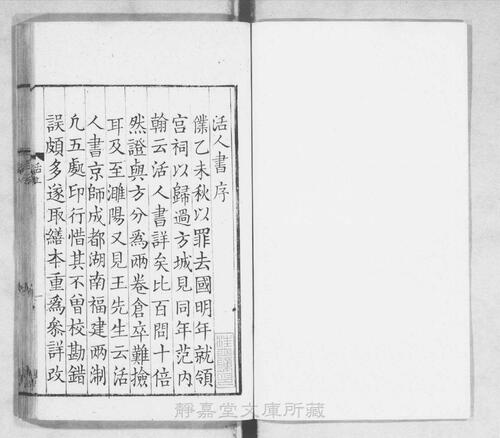 活人書序
僕乙未秋以罪去國明年就領
宫祠以歸過方城見同年范内
翰云活人書詳矣比百問十倍
然證與方分爲兩卷倉卒難撿
耳及至濉陽又見王先生云活
人書京師成都湖南福建兩淛
凢五處印行惜其不曾校勘錯
誤頗多遂取繕本重爲叅詳改
静嘉堂文庫所藏